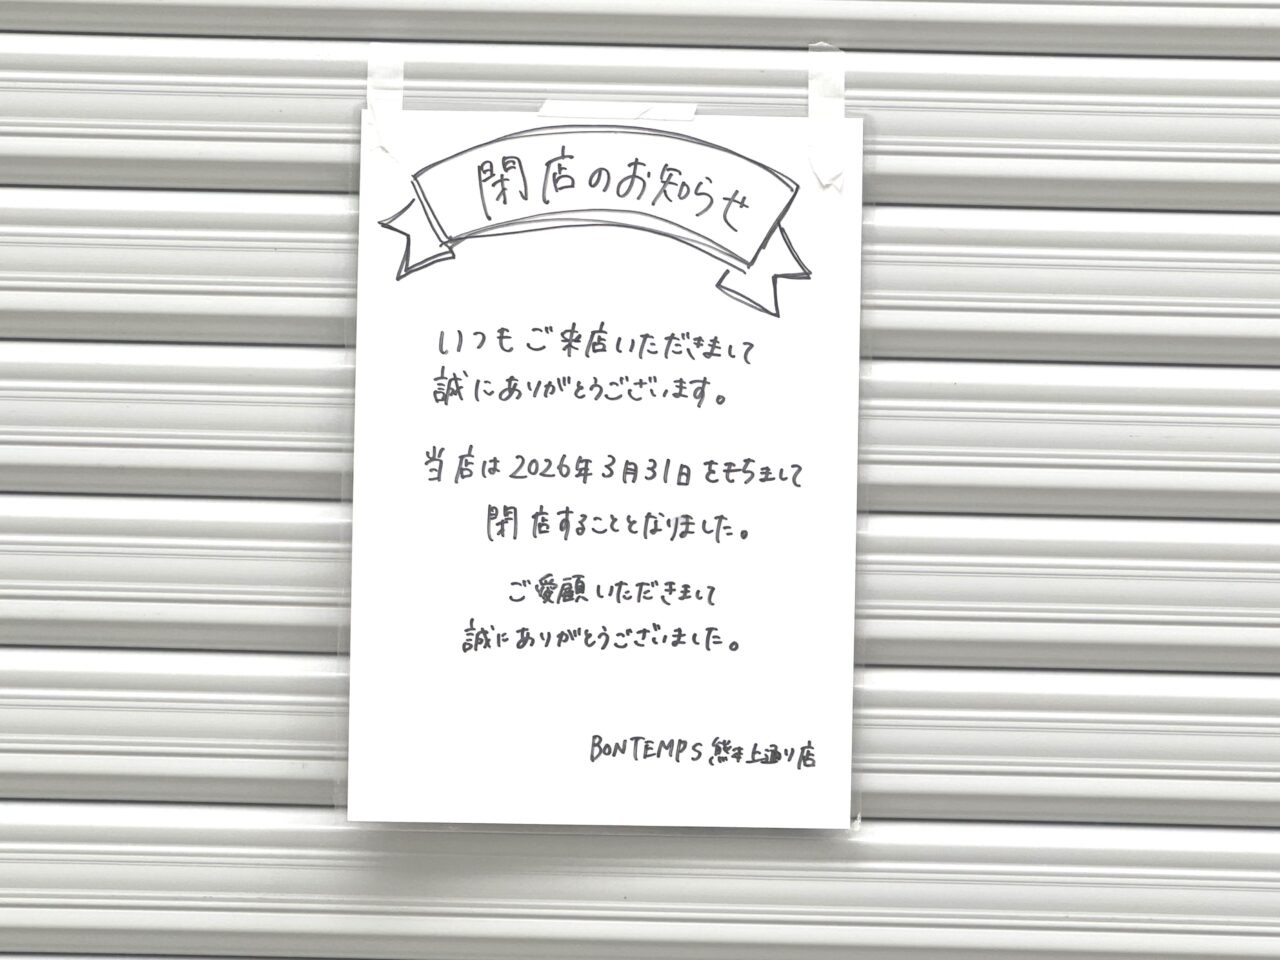 閉店のお知らせ
いつもご来店いただきまして
誠にありがとうございます。
当店は2026年3月31日をもちまして
閉店することとなりました。
ご愛顧いただきまして
誠にありがとうございました。
BONTEMPS 熊本上通り店